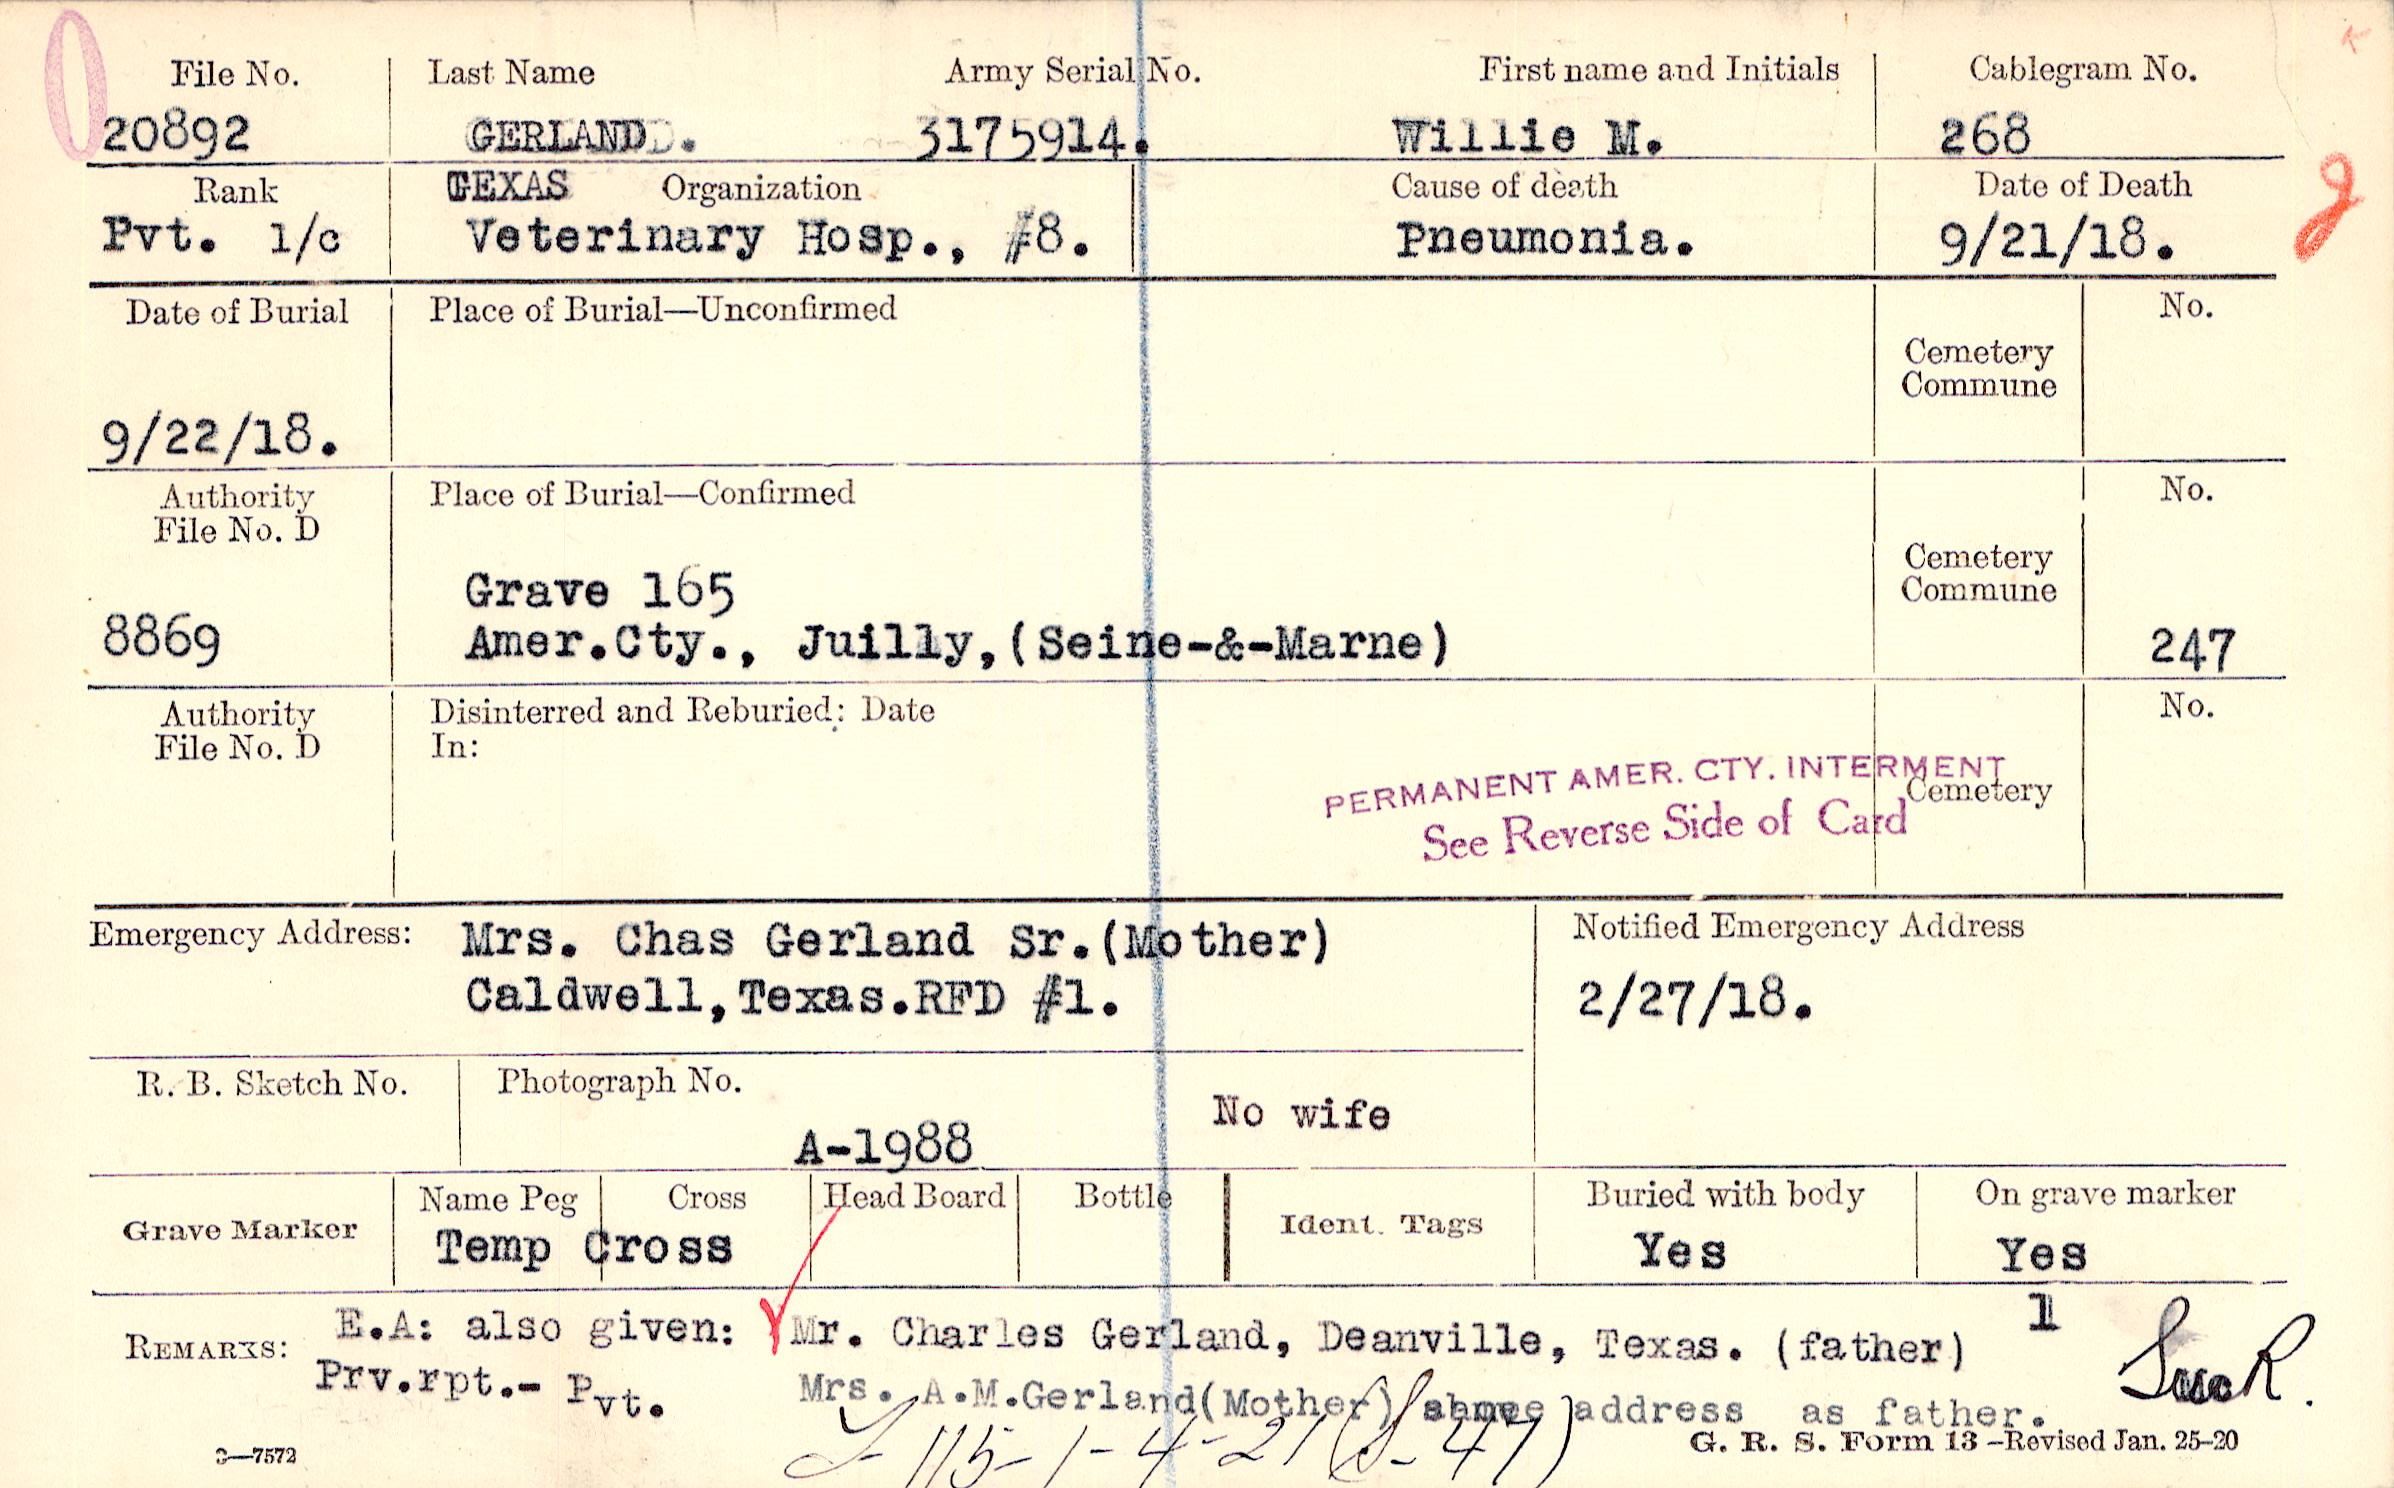 File No. Last Name Army Serial No. First name and Initials Cablegram No.
20892 GERLAND. 3175914. Willie M. 268
Rank TEXAS Organization Cause of death Date of Death
Pvt. 1/c Veterinary Hosp., #8. Pneumonia. 9/21/18.
Date of Burial Place of Burial—Unconfirmed No.
Cemetery
Commune
9/22/18.
Authority Place of Burial—Confirmed No.
File No. D
Cemetery
Grave 165 Commune
8869 Amer.Cty., Juilly,(Seine-&-Marne) 247
Authority Disinterred and Reburied: Date No.
File No. D In:
PERMANENT AMER. CTY. INTERMENT
Cemetery
See Reverse Side of Card
Emergency Address: Mrs. Chas Gerland Sr.(Mother) Notified Emergency Address
Caldwell,Texas.RFD #1. 2/27/18.
R. B. Sketch No. Photograph No.
No wife
A-1988
Grave Marker Name Peg Cross Head Board Bottle Ident. Tags Buried with body On grave marker
Temp Cross Yes Yes
1
REMARKS: E.A: also given: Mr. Charles Gerland, Deanville, Texas. (father)
Prv.rpt.- Pvt. Mrs. A.M.Gerland(Mother) address as father.
115-1-4-21 (S-47)
3—7572 G. R. S. Form 13 –Revised Jan. 25–20